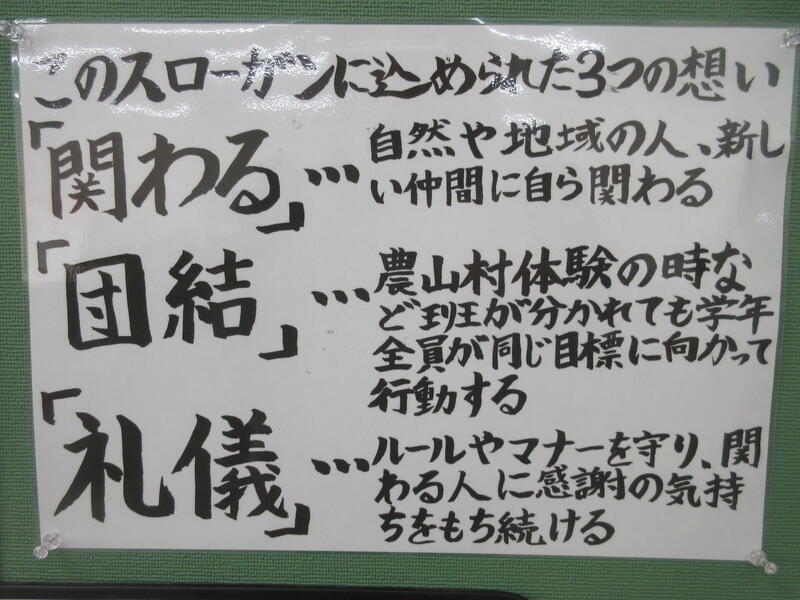 このスローガンに込められた3つの想い
「関わる」…自然や地域の人、新し
い仲間に自ら関わる
「団結」…農山村体験の時な
ど班が分かれても学年
全員が同じ目標に向かって
行動する
「礼儀」…ルールやマナーを守り、関
わる人に感謝の気持
ちをもち続ける